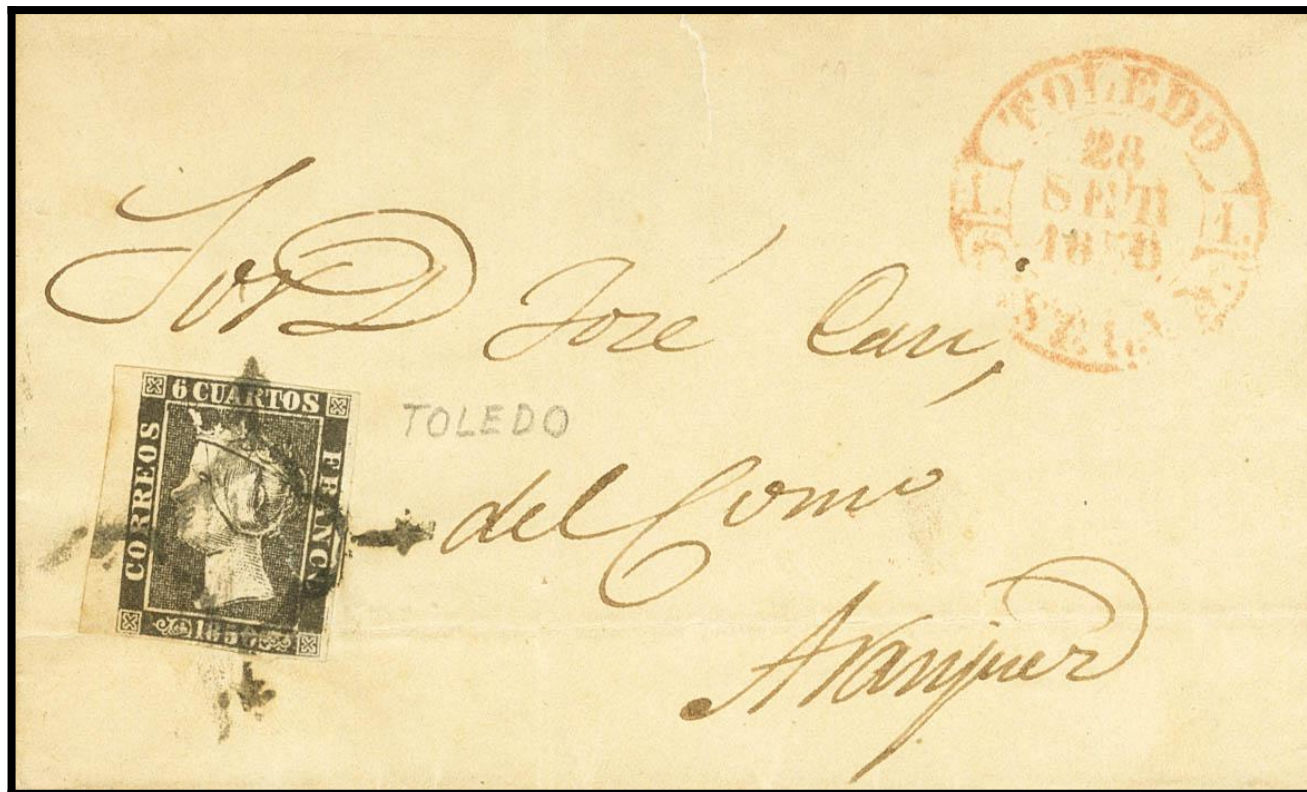 TOLEDO
28
SET
1850
Sor D José Can,
6 CUARTOS
CORREOS
FRANCO
1850
TOLEDO
del Como
Aranjuez